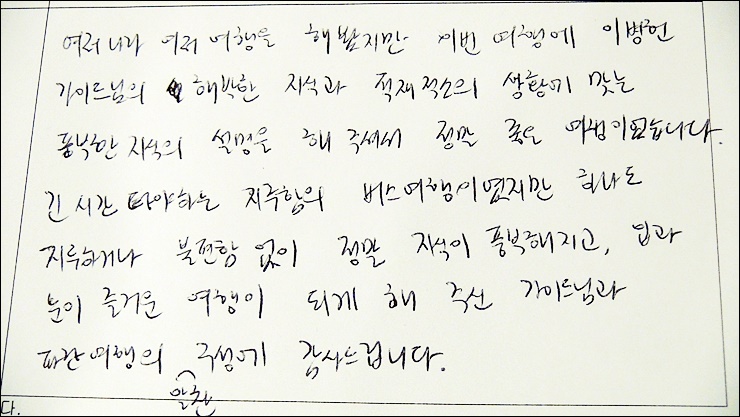 여러 나라 여러 여행을 해 봤지만 이번 여행에 이병헌
가이드님의 해박한 지식과 적재적소의 상황에 맞는
풍부한 지식의 설명을 해 주셔서 정말 좋은 여행이었습니다.
긴 시간 타야하는 지루함의 버스여행이였지만 하나도
지루하거나 불편함 없이 정말 지식이 풍부해지고, 입과
눈이 즐거운 여행이 되게 해 주신 가이드님과
여행의 알찬 구성에 감사드립니다.
다.